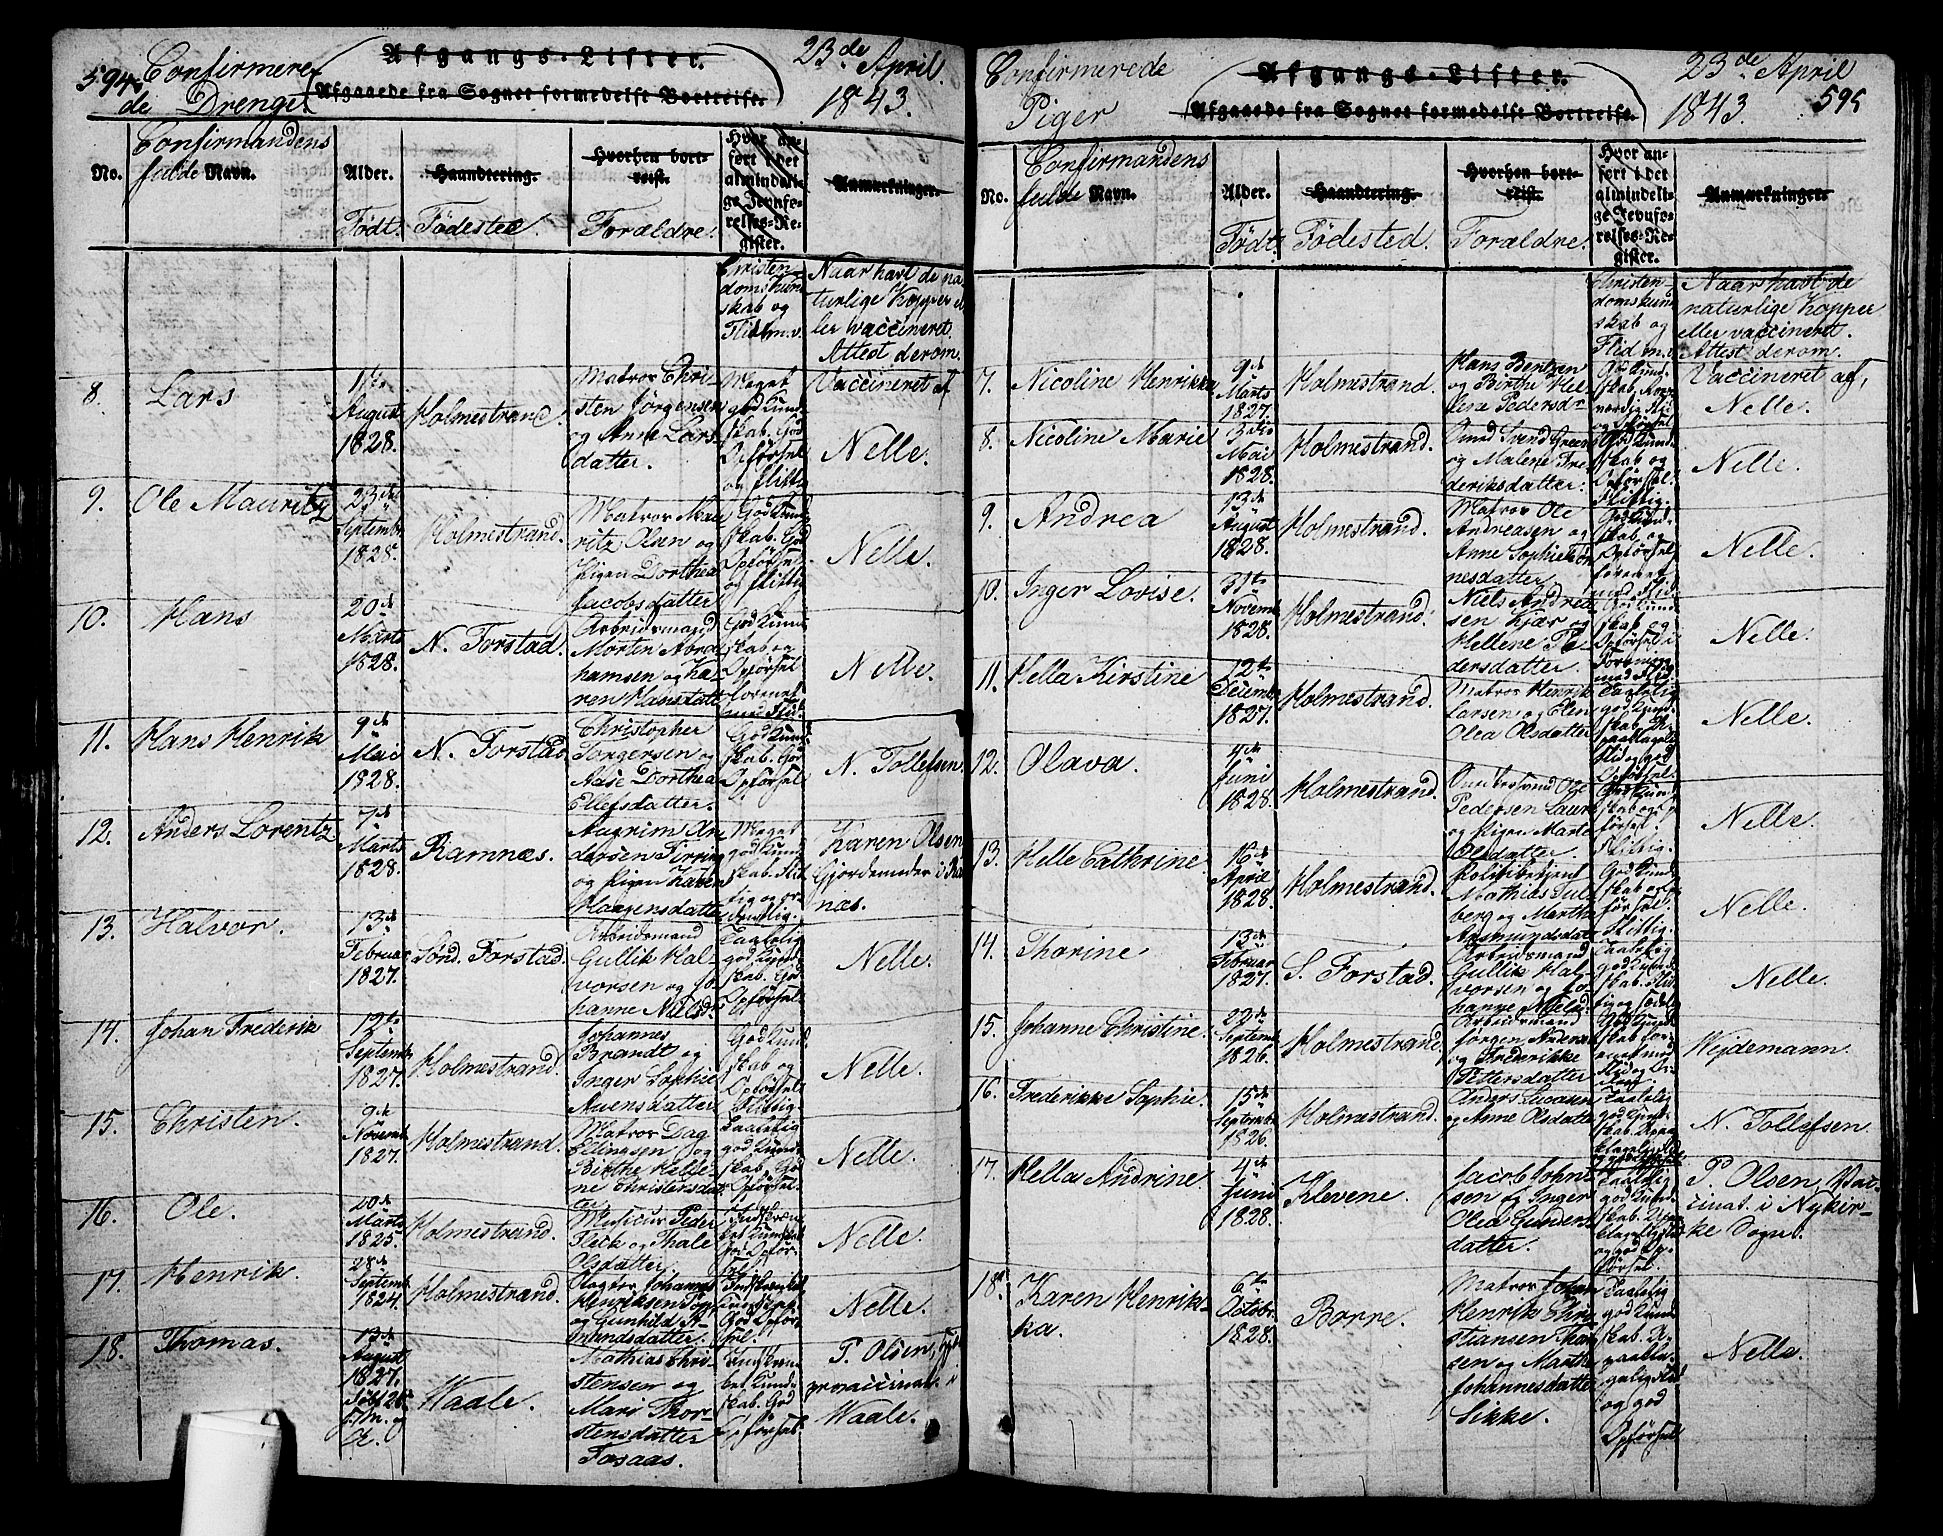 594. Confirmere=
de Drenge
Afgangs-Lister.
Afgaaede fra Sognet formedelst Bortreise.
23de April
1843.
No.
Confirmandens
fulde Navn.
Alder.
Født.
Haandtering.
Födested.
Hvorhen bort-
reist.
Forældre.
Hvor an-
ført i det
almindeli-
ge Jevnfø-
relses-Re-
gister.
Anmærkninger.
Christen-
domskund
skab og
Flid m.v.
Naar havt de na-
turlige Kopper el
ler vaccineret.
Attest derom.
8.
Lars
11te
August
1828.
Holmestrand.
Matros Chri
sten Jörgensen
og Anne Lars
datter.
Meget
god Kund
skab. God
Opförsel
og flittig
Vaccineret af
Nelle.
9.
Ole Mauritz
23de
Septembr
1828.
Holmestrand.
Matros Mau
ritz Olsen og
Pigen Dorthea
Jacobsdatter
God Kund
skab. God
Opförsel
og flittig
Nelle.
10.
Hans
20de
Marts
1828.
N. Forstad.
Arbeidsmand
Morten Abra
hamsen og Ka
ren Hansdatt
God Kund
skab og
Opförsel
forenet
med Flid.
Nelle.
11.
Hans Henrik
9de
Mai
1828.
N. Forstad.
Christopher
Jörgersen og
Aase Dorthea
Ellefsdatter.
God Kund
skab. God
Opförsel
N. Tollefsen.
12.
Anders Lorentz
7de
Marts
1828.
Ramnæs.
An
dersen
og Pigen Karen
Haagensdatter
Meget
god Kund
skab. Flit
tig og or
dentlig.
Karen Olsen
Gjordemoder i Ra
næs.
13.
Halvor.
13de
Februar
1827.
Sønd. Forstad.
Arbeidsmand
Gullik Hal
vorsen og Jo
hanne Nielsd.
Taalelig
god Kund
skab. God
Opförsel
Nelle.
14.
Johan Frederik
12te
Septembr
1827.
Holmestrand.
Johannes
Brandt og
Inger Sophie
Auensdatter
God Kund
skab og
Opförsel
Flittig.
Nelle.
15.
Christen.
9de
Novemb
1827.
Holmestrand.
Matros Dag
Ellingsen og
Birthe Helle
ne Christensdat
ter
Taalelig
god Kund
skab. God
Opförsel.
Nelle.
16.
Ole.
20de
Marts
1825.
Holmestrand.
Musicus Peder
Fleck og Thale
Olsdatter
Indskræn
ket Kundskab
God Opför
sel.
Nelle.
17.
Henrik.
28de
Septemb
1824.
Holmestrand.
Johannes
Henriksen
og Gunhild
mundsdatter.
God Opför
sel.
Nelle.
18.
Thomas.
13de
August
1827.
Waale.
Mathias Chri
stensen og
Mari Thor-
stensdatter
Fosaas.
Indskræn
ket Kund
skab. God
Opförsel
P. Olsen,
Waale.
Confirmerede
Piger
Afgangs-Lister.
Afgaaede fra Sognet formedelst Bortreise.
23de April
1843.
595
No.
Confirmandens
fulde Navn.
Alder.
Födt.
Haandtering.
Födested.
Hvorhen bort-
reist.
Forældre.
Hvor an-
ført i det
almindeli-
ge Jevnfø-
relses-Re-
gister.
Anmærkninger.
Christen-
domskund
skab og
Flid m.v.
Naar havt de
naturlige Kopper
eller vaccineret.
Attest derom.
7.
Nicoline Henrikka
9de
Marts
1827.
Holmestrand.
Hans Bentsen
og Birthe Hel
lene Pedersdr
God Kund
skab.
og Opförsel
Vaccineret af,
Nelle.
8.
Nicoline Marie
3die
Mai
1828.
Holmestrand.
Svend
og Malene Fre
deriksdatter.
God Kund
skab og
Opförsel.
Flittig.
Nelle.
9.
Andrea
13de
August
1828.
Holmestrand.
Matros Ole
Andreasen og
Anne Sophie Tøn
nesdatter
God Kund
skab og
Opförsel
forenet
med Flid
Nelle.
10.
Inger Lovise.
31te
Novemb
1828.
Holmestrand.
Niels Andrea
sen Kjær og
Hellene Pe
dersdatter
God Kund
skab og
Opförsel
med Flid
Nelle.
11.
Hella Kirstine
12te
Decemb
1827.
Holmestrand.
Matros Henrik
Larsen og Elen
Olea Olsdatter
Taalelig
god Kund
skab.
Flid og god
Opförsel.
Nelle.
12.
Olava.
4de
Juni
1828.
Holmestrand.
Ole
Pedersen
og Pigen Marte
Olsdatter.
God Kund
skab og Op
försel.
Flittig.
Nelle.
13.
Helle Cathrine
16de
April
1828.
Holmestrand.
Politibetjent
Mathias
berg og Marthe
Asmundsdatt
God Kund
skab og Op
försel.
Flittig.
Nelle.
14.
Thorine
13de
Februar
1827.
S. Forstad.
Arbeidsmand
Gullik Hal
vorsen og Jo
hanne Nielsd.
Taalelig
god Kund
skab. Flit
tig og sædelig
Nelle.
15.
Johanne Christine.
22de
Septemb
1826.
Holmestrand.
Arbeidsmand
Jörgen Anders
og Frederikke
Pettersdatter
God Kund
skab for-
enet med
Flid og
Wejdemann.
16.
Frederikke Sophie.
15de
Septemb
1826.
Holmestrand.
Anders Lucasen
og Anne Olsdatter
Taalelig
god Kund
skab. Upaa
klagelig
N. Tollefsen.
17.
Hella Andrine
4de
Juni
1828.
Klevene.
Jacob Johne
sen og Inger
Olea Gunders
datter.
Taalelig
god Kund
skab. Upaa
klagelig Flid
og god Op
försel.
P. Olsen, Vac-
cinat. i Nykir-
ke Sogn.
18.
Karen Henrik-
ka.
6te
Octobr
1828.
Borre.
Matros Johan
Henrik Chri
stiansen Thor
sen og Marthe
Johannesdatter
Sikke.
Taalelig
god Kund
skab. U
paakla
gelig Flid
og god
Opförsel
Nelle.